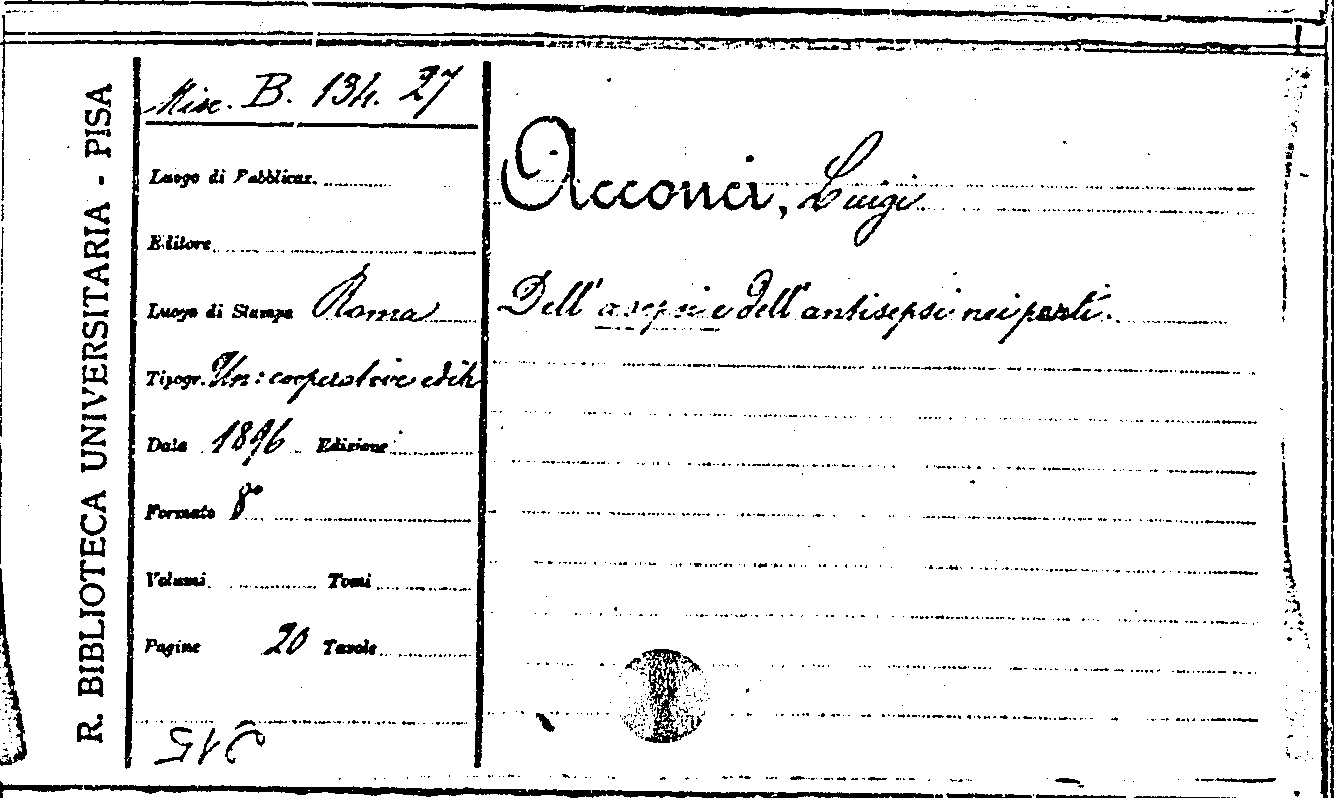 R. BIBLIOTECA UNIVERSITARIA - PISA
Misc. B. 134. 27
Luogo di Pubblicaz.
Editore
Luogo di Stampa Roma
Tipogr. Un: cooperative edit
Data 1896 Edizione
Formato 8°
Volumi Tomi
Pagine 20 Tavole
215
Acconci, Luigi
Dell'asepsi e dell'antisepsi nei parti.